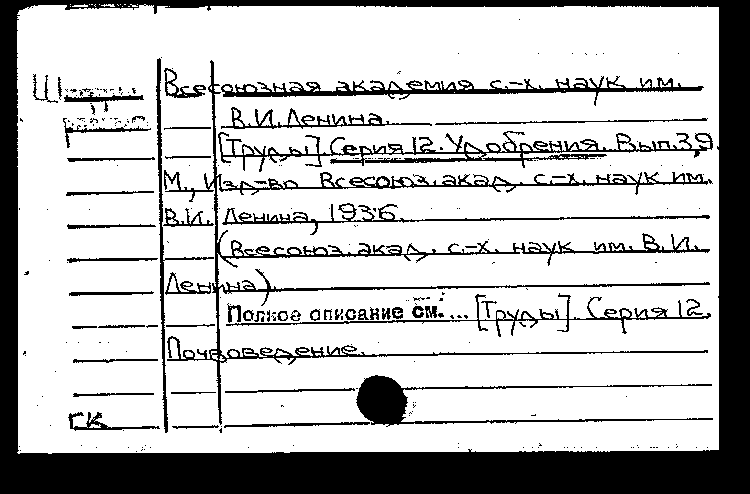 Всесоюзная академия с.-х. наук им.
В.И. Ленина.
[Труды] Серия 12. Удобрения. Вып. 3,9.
М., Изд-во Всесоюз. акад. с.-х. наук им.
В.И. Ленина, 1936.
(Всесоюз. акад. с.-х. наук им. В.И.
Ленина).
Полное описание см. ... [Труды] Серия 12.
Почвоведение.
ГК